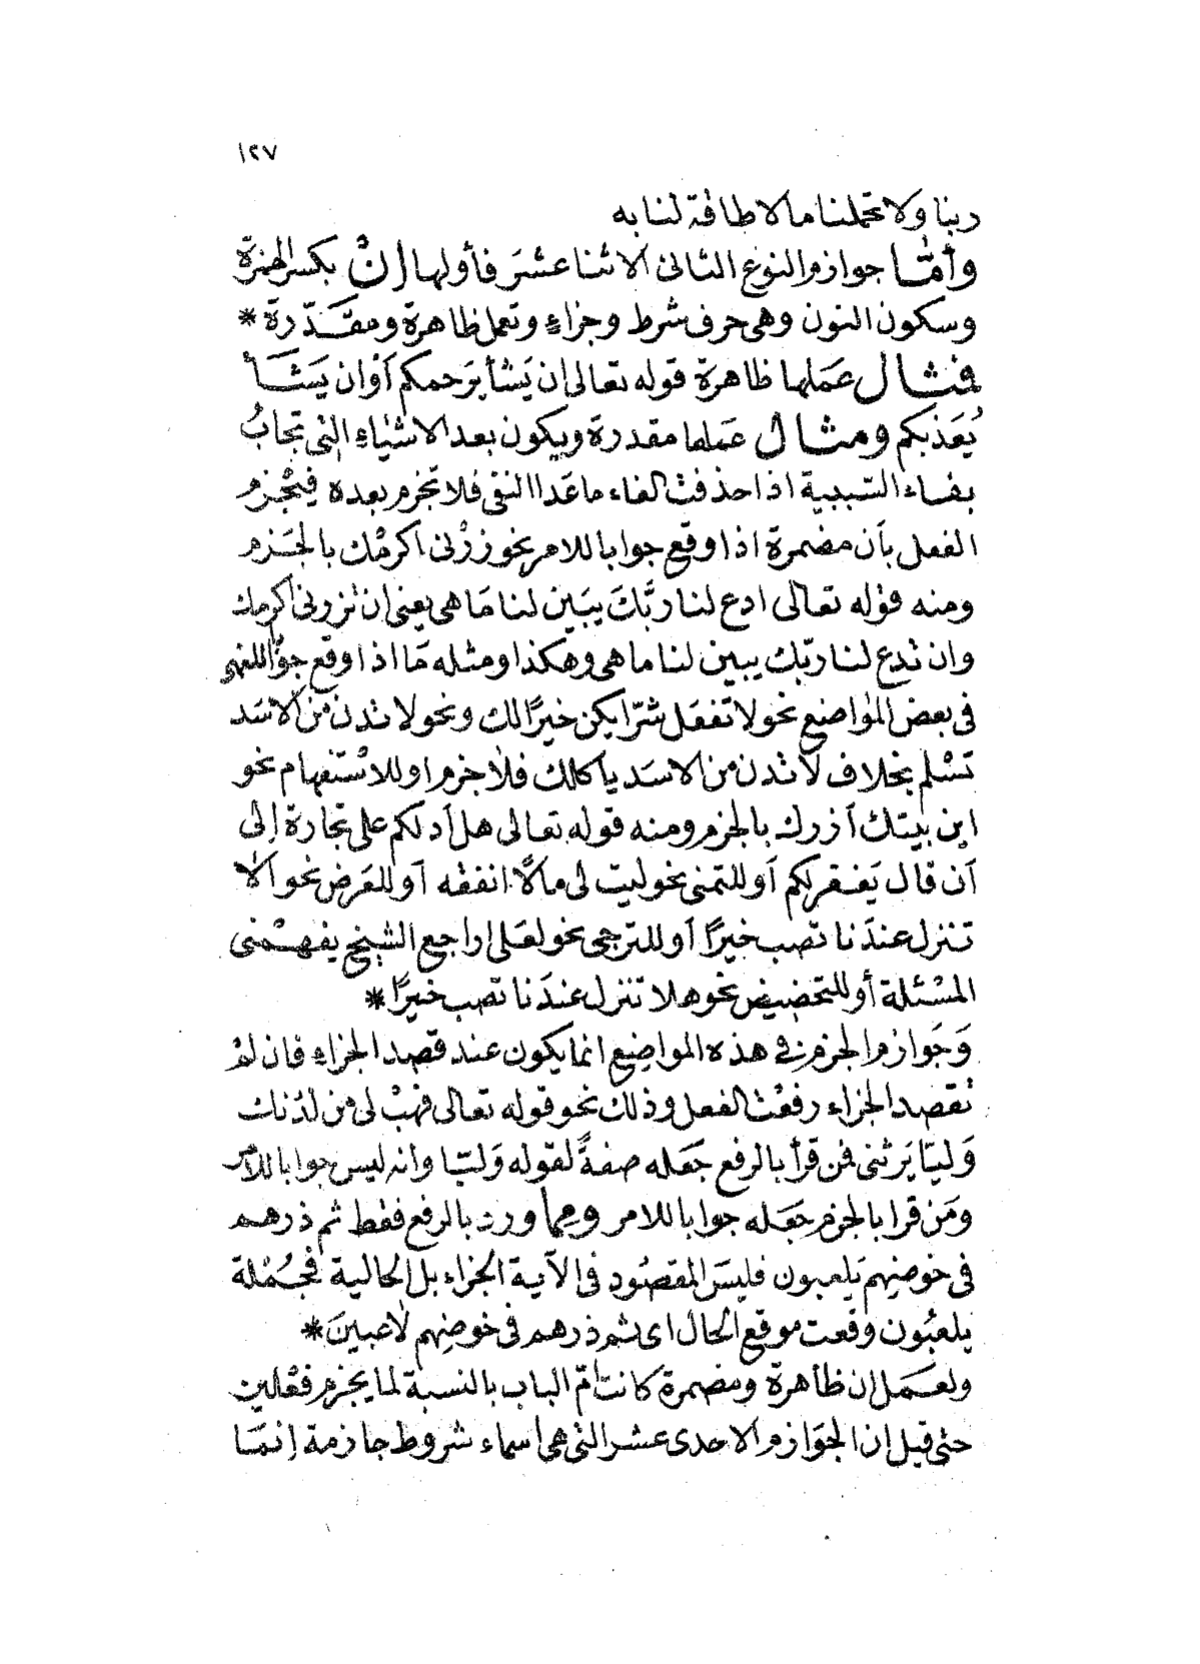 ١٢٧
ربنا ولا تحملنا ما لا طاقة لنا به
وأمّا جوازم النوع الثانى الاثنا عشَرَ فأولها إنْ بكسر الهمزة
وسكون النون وهى حرف شرط وجزاءٍ وتعمل ظاهرة ومقَدَّرة *
فمثال عَمَلها ظاهرَة قوله تعالى إن يَشأ يَرحمكم أوْ ان يَشَأ
يُعَذبكم ومثال عَملها مقدرة ويكون بعد الاشياءِ التى تجابُ
بفاء السّببية اذا حذفت الفاء ما عَدا النفى فلا تجزم بعده فيُجْزم
الفعل بأن مضمرة اذا وقع جوابا للامر نحو زرْنى اكرمْك بالجَزم
ومنه قوله تعالى ادع لنا ربَّكَ يبَين لنا مَا هى يعنى ان تزرنى اكرمك
وان تدع لنا ربّك يبين لنا ما هى وهكذا ومثله مَا اذا وقع جوابًا للنهى
فى بعض المواضع نحو لا تفعَل شرًّا يكن خيرًا لك ونحو لا تدن من الاسَد
تسْلم بخلاف لا تدن من الاسَد ياكلك فلا جزم او للاسْتفهام نحو
اين بيتك أزرك بالجزم ومنه قوله تعالى هل أدلكم على تجارة إلى
أن قال يَغفر لكم أو للتمنى نحو ليت لى مالًا انفقه أو للعَرض نحو ألا
تنزل عندَنا تصب خيرًا أو للترجى نحو لعَلى اراجع الشيخ يفهمْنى
المسْئلة أو للتحضيض نحو هلا تنزل عندَنا تصب خيرًا *
وَجَوازم الجزم فى هذه المواضِع انما يكون عند قصد الجزاءِ فان لمْ
تقصد الجزاء رفعْت الفعل وذلك نحو قوله تعالى فهَبْ لى من لدُنك
وَليّا يَرثنى فمن قرأ بالرفع جَعَله صفةً لقوله وَليّا وانه ليس جوابا للامر
ومَن قرا بالجزم جَعَله جوابا للامر ومما ورد بالرفع فقط ثم ذرهم
فى خوضِهم يَلعبون فليسَ المقصُود فى الآية الجزاء بل الحالية فجُمْلة
يلعبُون وقعت موقع الحال اى ثم ذرهم فى خوضِهم لاعبينَ *
ولعَمَل إن ظاهرة ومضمرة كانت أمّ الباب بالنسبة لما يجزم فعْلين
حتى قيل إن الجوَازم الاحدى عشر التى هى اسماء شروط جازمة إنمَا